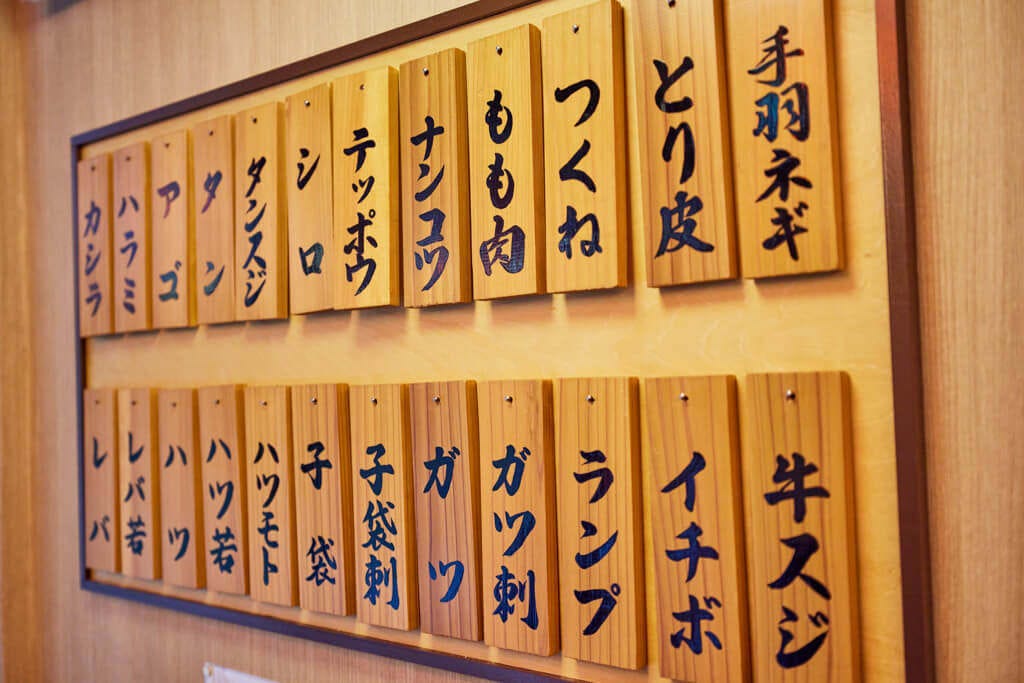 手羽ネギ
とり皮
つくね
もも肉
ナンコツ
テッポウ
シロ
タンスジ
タン
アゴ
ハラミ
カシラ
牛スジ
イチボ
ランプ
ガツ刺
ガツ
子袋刺
子袋
ハツモト
ハツ若
ハツ
レバ若
レバ